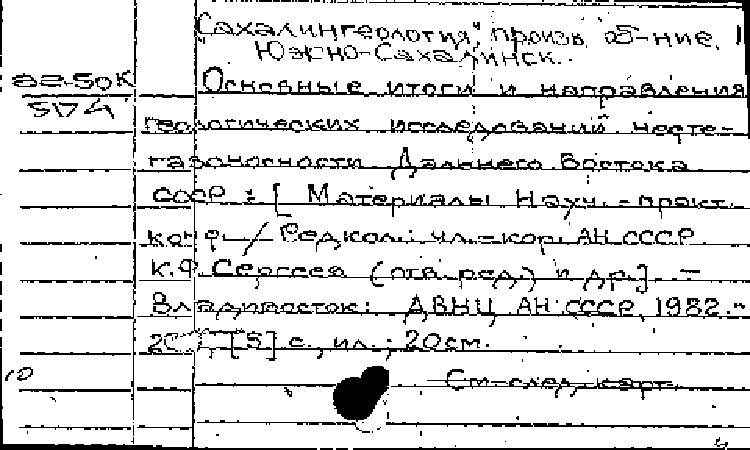 "Сахалингеология", произв. об-ние.
Южно-Сахалинск.
Основные итоги и направления
574
геологических исследований нефте-
газоносности Дальнего Востока
СССР : [ Материалы Науч.-практ.
конф. / Редкол.: чл.-кор. АН СССР
К.Ф. Сергеев (отв. ред.) и др.]. –
Владивосток: ДВНЦ АН СССР, 1982.-
[5] с., ил.; 20см.
10
См. след. карт.
4